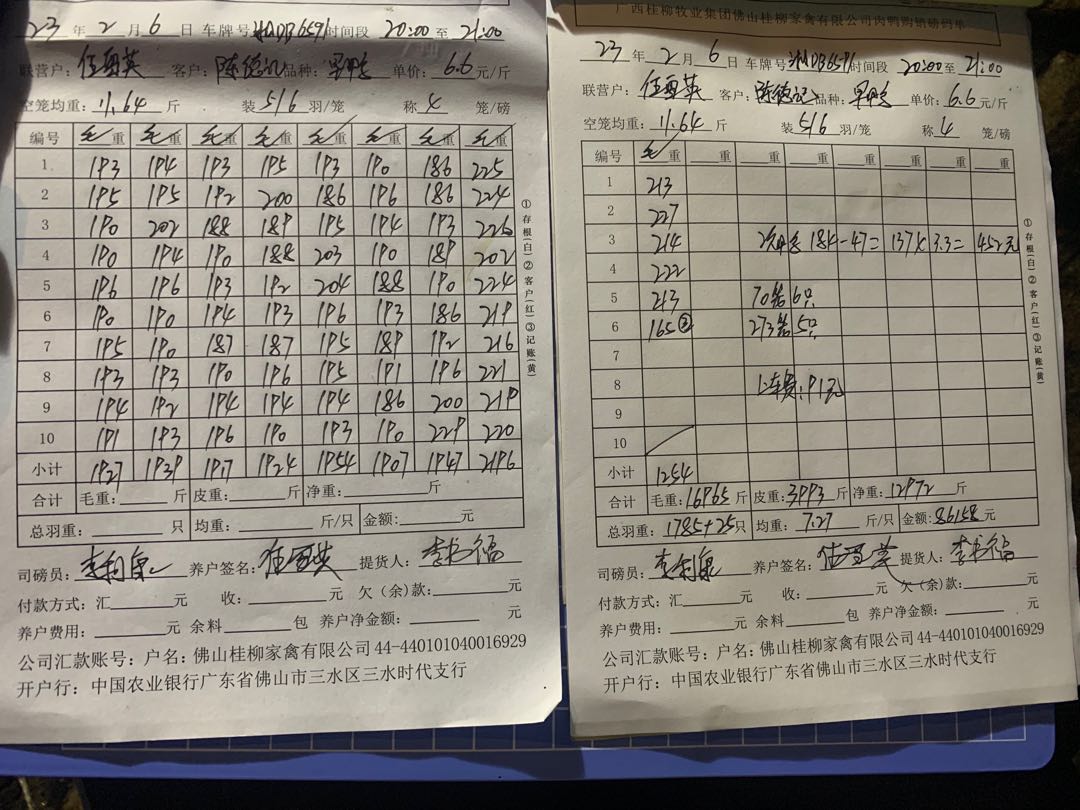 23 年 2 月 6 日 车牌号 时间段 20:00 至 21:00
联营户: 客户: 陈德记 品种: 单价: 6.6 元/斤
空笼均重: 11.64 斤 装 5/6 羽/笼 称 4 笼/磅
编号 毛重 毛重 毛重 毛重 毛重 毛重 毛重 毛重
1 193 194 193 195 193 190 186 225
2 195 195 192 200 186 196 186 224
3 190 202 188 189 195 194 193 226
4 190 194 190 188 203 190 189 202
5 196 196 193 192 204 188 190 224
6 190 190 194 193 196 193 186 219
7 195 190 187 187 195 189 192 216
8 193 193 190 196 195 191 196 221
9 194 192 194 194 194 186 200 219
10 191 193 196 190 193 190 229 220
小计 1927 1939 1917 1924 1954 1907 1947 2196
合计 毛重: 斤 皮重: 斤 净重: 斤
总羽重: 只 均重: 斤/只 金额: 元
司磅员: 养户签名: 提货人:
付款方式: 汇 元 收: 元 欠(余)款: 元
养户费用: 元 余料 包 养户净金额: 元
公司汇款账号: 户名: 佛山桂柳家禽有限公司 44-440101040016929
开户行: 中国农业银行广东省佛山市三水区三水时代支行
①存根(白)②客户(红)③记账(黄)
广西桂柳牧业集团佛山桂柳家禽有限公司肉鸭购销磅码单
23 年 2 月 6 日 车牌号 时间段 20:00 至 21:00
联营户: 客户: 陈德记 品种: 单价: 6.6 元/斤
空笼均重: 11.64 斤 装 5/6 羽/笼 称 4 笼/磅
编号 毛重 重 重 重 重 重 重 重
1 213
2 227
3 214 184-47=137×3.3=452元
4 222
5 213 70笼6只
6 165② 273笼5只
7
8 上车费:91元
9
10
小计 1254
合计 毛重: 16965 斤 皮重: 3993 斤 净重: 12972 斤
总羽重: 1785+25 只 均重: 7.27 斤/只 金额: 86158 元
司磅员: 养户签名: 提货人:
付款方式: 汇 元 收: 元 欠(余)款: 元
养户费用: 元 余料 包 养户净金额: 元
公司汇款账号: 户名: 佛山桂柳家禽有限公司 44-440101040016929
开户行: 中国农业银行广东省佛山市三水区三水时代支行
①存根(白)②客户(红)③记账(黄)